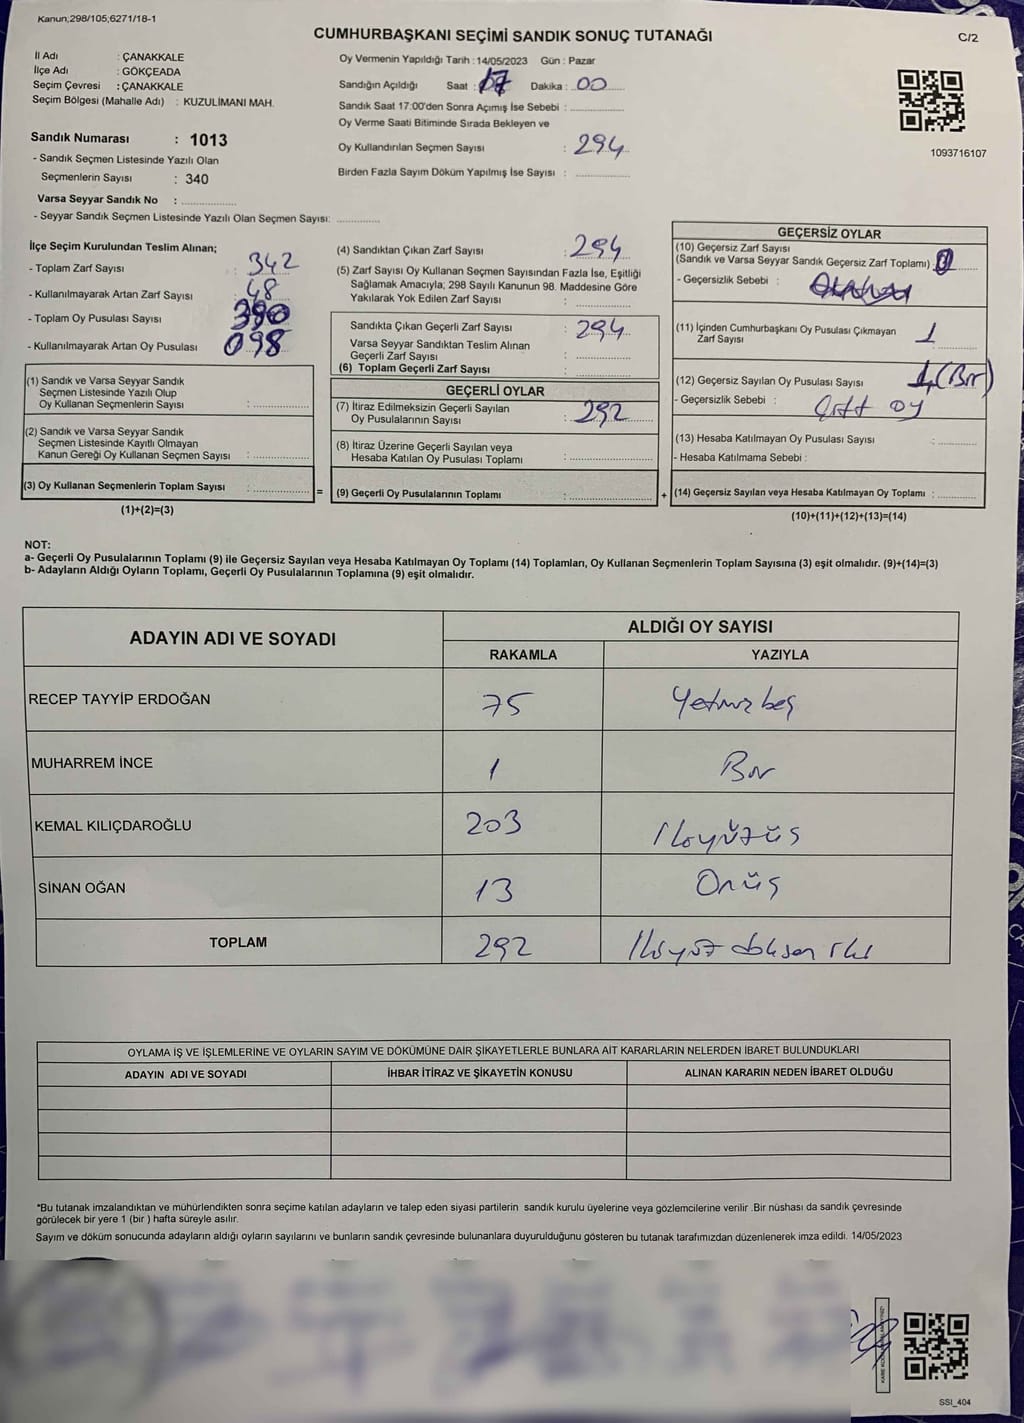 Kanun;298/105;6271/18-1
CUMHURBAŞKANI SEÇİMİ SANDIK SONUÇ TUTANAĞI
C/2
İl Adı : ÇANAKKALE
İlçe Adı : GÖKÇEADA
Seçim Çevresi : ÇANAKKALE
Seçim Bölgesi (Mahalle Adı) : KUZULİMANI MAH.
Oy Vermenin Yapıldığı Tarih : 14/05/2023 Gün : Pazar
Sandığın Açıldığı Saat : 17 Dakika : 00
Sandık Saat 17:00'den Sonra Açımış İse Sebebi :
Oy Verme Saati Bitiminde Sırada Bekleyen ve
Oy Kullandırılan Seçmen Sayısı : 294
Birden Fazla Sayım Döküm Yapılmış İse Sayısı :
1093716107
Sandık Numarası : 1013
- Sandık Seçmen Listesinde Yazılı Olan
Seçmenlerin Sayısı : 340
Varsa Seyyar Sandık No :
- Seyyar Sandık Seçmen Listesinde Yazılı Olan Seçmen Sayısı:
İlçe Seçim Kurulundan Teslim Alınan;
- Toplam Zarf Sayısı : 342
- Kullanılmayarak Artan Zarf Sayısı : 48
- Toplam Oy Pusulası Sayısı : 390
- Kullanılmayarak Artan Oy Pusulası : 098
(1) Sandık ve Varsa Seyyar Sandık
Seçmen Listesinde Yazılı Olup
Oy Kullanan Seçmenlerin Sayısı :
(2) Sandık ve Varsa Seyyar Sandık
Seçmen Listesinde Kayıtlı Olmayan
Kanun Gereği Oy Kullanan Seçmen Sayısı :
(3) Oy Kullanan Seçmenlerin Toplam Sayısı : =
(1)+(2)=(3)
(4) Sandıktan Çıkan Zarf Sayısı : 294
(5) Zarf Sayısı Oy Kullanan Seçmen Sayısından Fazla İse, Eşitliği
Sağlamak Amacıyla; 298 Sayılı Kanunun 98. Maddesine Göre
Yakılarak Yok Edilen Zarf Sayısı :
Sandıkta Çıkan Geçerli Zarf Sayısı : 294
Varsa Seyyar Sandıktan Teslim Alınan
Geçerli Zarf Sayısı :
(6) Toplam Geçerli Zarf Sayısı :
GEÇERLİ OYLAR
(7) İtiraz Edilmeksizin Geçerli Sayılan
Oy Pusulalarının Sayısı : 292
(8) İtiraz Üzerine Geçerli Sayılan veya
Hesaba Katılan Oy Pusulası Toplamı :
(9) Geçerli Oy Pusulalarının Toplamı : +
GEÇERSİZ OYLAR
(10) Geçersiz Zarf Sayısı
(Sandık ve Varsa Seyyar Sandık Geçersiz Zarf Toplamı) :
- Geçersizlik Sebebi :
(11) İçinden Cumhurbaşkanı Oy Pusulası Çıkmayan
Zarf Sayısı : 1
(12) Geçersiz Sayılan Oy Pusulası Sayısı 1 (Bir)
- Geçersizlik Sebebi : Çift oy
(13) Hesaba Katılmayan Oy Pusulası Sayısı :
- Hesaba Katılmama Sebebi :
(14) Geçersiz Sayılan veya Hesaba Katılmayan Oy Toplamı :
(10)+(11)+(12)+(13)=(14)
NOT:
a- Geçerli Oy Pusulalarının Toplamı (9) ile Geçersiz Sayılan veya Hesaba Katılmayan Oy Toplamı (14) Toplamları, Oy Kullanan Seçmenlerin Toplam Sayısına (3) eşit olmalıdır. (9)+(14)=(3)
b- Adayların Aldığı Oyların Toplamı, Geçerli Oy Pusulalarının Toplamına (9) eşit olmalıdır.
ADAYIN ADI VE SOYADI
ALDIĞI OY SAYISI
RAKAMLA YAZIYLA
RECEP TAYYİP ERDOĞAN 75 Yetmiz beş
MUHARREM İNCE 1 Bir
KEMAL KILIÇDAROĞLU 203 İkiyüzüç
SİNAN OĞAN 13 Onüç
TOPLAM 292 İkiyüz doksan iki
OYLAMA İŞ VE İŞLEMLERİNE VE OYLARIN SAYIM VE DÖKÜMÜNE DAİR ŞİKAYETLERLE BUNLARA AİT KARARLARIN NELERDEN İBARET BULUNDUKLARI
ADAYIN ADI VE SOYADI İHBAR İTİRAZ VE ŞİKAYETİN KONUSU ALINAN KARARIN NEDEN İBARET OLDUĞU
*Bu tutanak imzalandıktan ve mühürlendikten sonra seçime katılan adayların ve talep eden siyasi partilerin sandık kurulu üyelerine veya gözlemcilerine verilir .Bir nüshası da sandık çevresinde
görülecek bir yere 1 (bir ) hafta süreyle asılır.
Sayım ve döküm sonucunda adayların aldığı oyların sayılarını ve bunların sandık çevresinde bulunanlara duyurulduğunu gösteren bu tutanak tarafımızdan düzenlenerek imza edildi. 14/05/2023
SSI_404